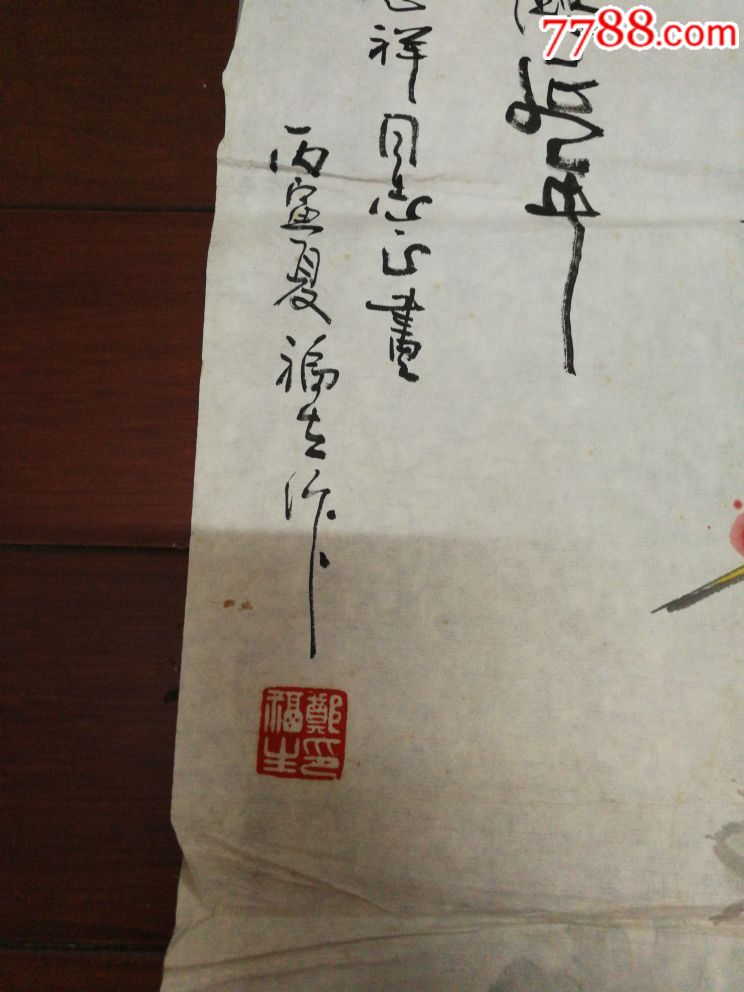 7788.com
年
祥同志正畫
丙寅夏福生作
鄭印
福生